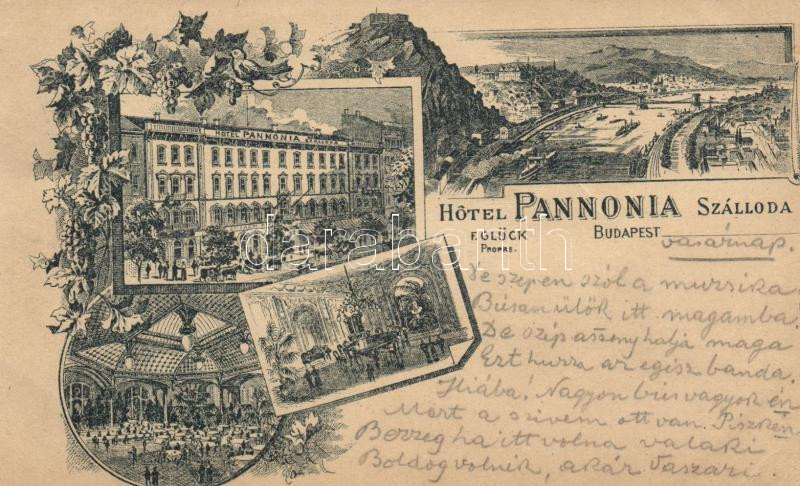 HOTEL PANNONIA SZÁLLODA
HÔTEL PANNONIA SZÁLLODA
F. GLÜCK
PROPRE.
BUDAPEST
vasárnap.
darabanth
De szépen szól a muzsika
Búsan ülök itt magamba.
De szép asszony halja maga
Ezt huzza az egész banda.
Hiába! Nagyon bús vagyok én
Mert a szivem ott van.
ha itt volna valaki
Boldog volnék, akár Vaszari.